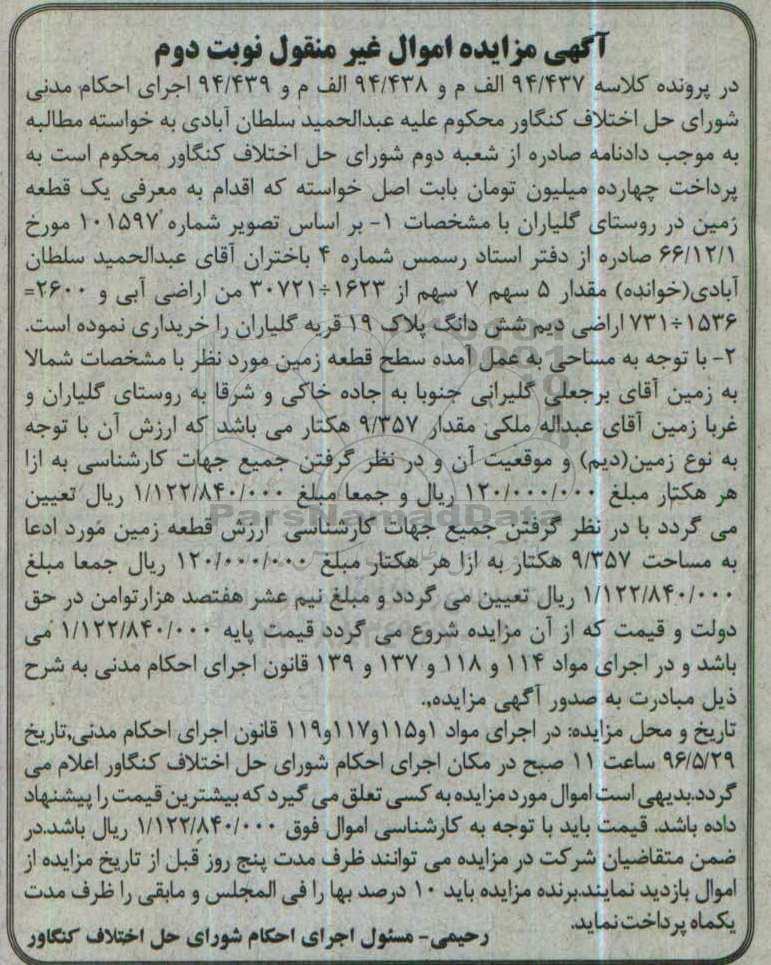 آگهی مزایده اموال غیر منقول نوبت دوم
در پرونده کلاسه ۹۴/۴۳۷ الف م و ۹۴/۴۳۸ الف م و ۹۴/۴۳۹ اجرای احکام مدنی
شورای حل اختلاف کنگاور محکوم علیه عبدالحمید سلطان آبادی به خواسته مطالبه
به موجب دادنامه صادره از شعبه دوم شورای حل اختلاف کنگاور محکوم است به
پرداخت چهارده میلیون تومان بابت اصل خواسته که اقدام به معرفی یک قطعه
زمین در روستای گلیاران با مشخصات ۱- بر اساس تصویر شماره ۱۰۱۵۹۷ مورخ
۶۶/۱۲/۱ صادره از دفتر استاد رسمس شماره ۴ باختران آقای عبدالحمید سلطان
آبادی(خوانده) مقدار ۵ سهم ۷ سهم از ۱۶۲۳÷۳۰۷۲۱ من اراضی آبی و ۲۶۰۰=
۱۵۳۶÷۷۳۱ اراضی دیم شش دانگ پلاک ۱۹ قریه گلیاران را خریداری نموده است.
۲- با توجه به مساحی به عمل آمده سطح قطعه زمین مورد نظر با مشخصات شمالا
به زمین آقای برجعلی گلیرانی جنوبا به جاده خاکی و شرقا به روستای گلیاران و
غربا زمین آقای عبداله ملکی مقدار ۹/۳۵۷ هکتار می باشد که ارزش آن با توجه
به نوع زمین(دیم) و موقعیت آن و در نظر گرفتن جمیع جهات کارشناسی به ازا
هر هکتار مبلغ ۱۲۰/۰۰۰/۰۰۰ ریال و جمعا مبلغ ۱/۱۲۲/۸۴۰/۰۰۰ ریال تعیین
ParsNamadData
می گردد با در نظر گرفتن جمیع جهات کارشناسی ارزش قطعه زمین مورد ادعا
به مساحت ۹/۳۵۷ هکتار به ازا هر هکتار مبلغ ۱۲۰/۰۰۰/۰۰۰ ریال جمعا مبلغ
۱/۱۲۲/۸۴۰/۰۰۰ ریال تعیین می گردد و مبلغ نیم عشر هفتصد هزارتوامن در حق
دولت و قیمت که از آن مزایده شروع می گردد قیمت پایه ۱/۱۲۲/۸۴۰/۰۰۰ می
باشد و در اجرای مواد ۱۱۴ و ۱۱۸ و ۱۳۷ و ۱۳۹ قانون اجرای احکام مدنی به شرح
ذیل مبادرت به صدور آگهی مزایده,.
تاریخ و محل مزایده: در اجرای مواد ۱و۱۱۵و۱۱۷و۱۱۹ قانون اجرای احکام مدنی,تاریخ
۹۶/۵/۲۹ ساعت ۱۱ صبح در مکان اجرای احکام شورای حل اختلاف کنگاور اعلام می
گردد.بدیهی است اموال مورد مزایده به کسی تعلق می گیرد که بیشترین قیمت را پیشنهاد
داده باشد. قیمت باید با توجه به کارشناسی اموال فوق ۱/۱۲۲/۸۴۰/۰۰۰ ریال باشد.در
ضمن متقاضیان شرکت در مزایده می توانند ظرف مدت پنج روز قبل از تاریخ مزایده از
اموال بازدید نمایند.برنده مزایده باید ۱۰ درصد بها را فی المجلس و مابقی را ظرف مدت
یکماه پرداخت نماید.
رحیمی- مسئول اجرای احکام شورای حل اختلاف کنگاور